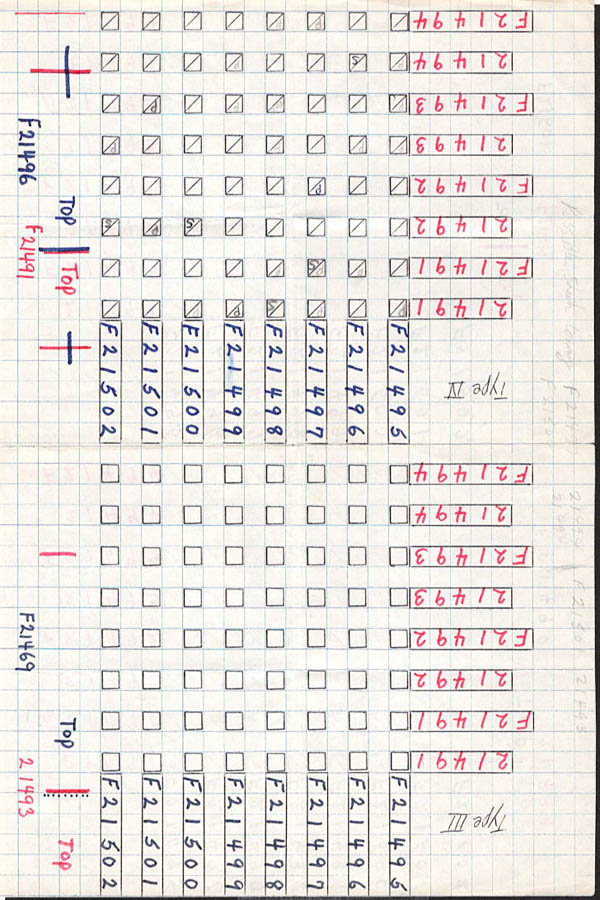 F21494
21494
F21493
21493
F21492
21492
F21491
21491
Type IV
F21495
F21496
F21497
F21498
F21499
F21500
F21501
F21502
F21496
Top
F21491
Top
F21494
21494
F21493
21493
F21492
21492
F21491
21491
Type III
F21495
F21496
F21497
F21498
F21499
F21500
F21501
F21502
F21469
Top
21493
Top